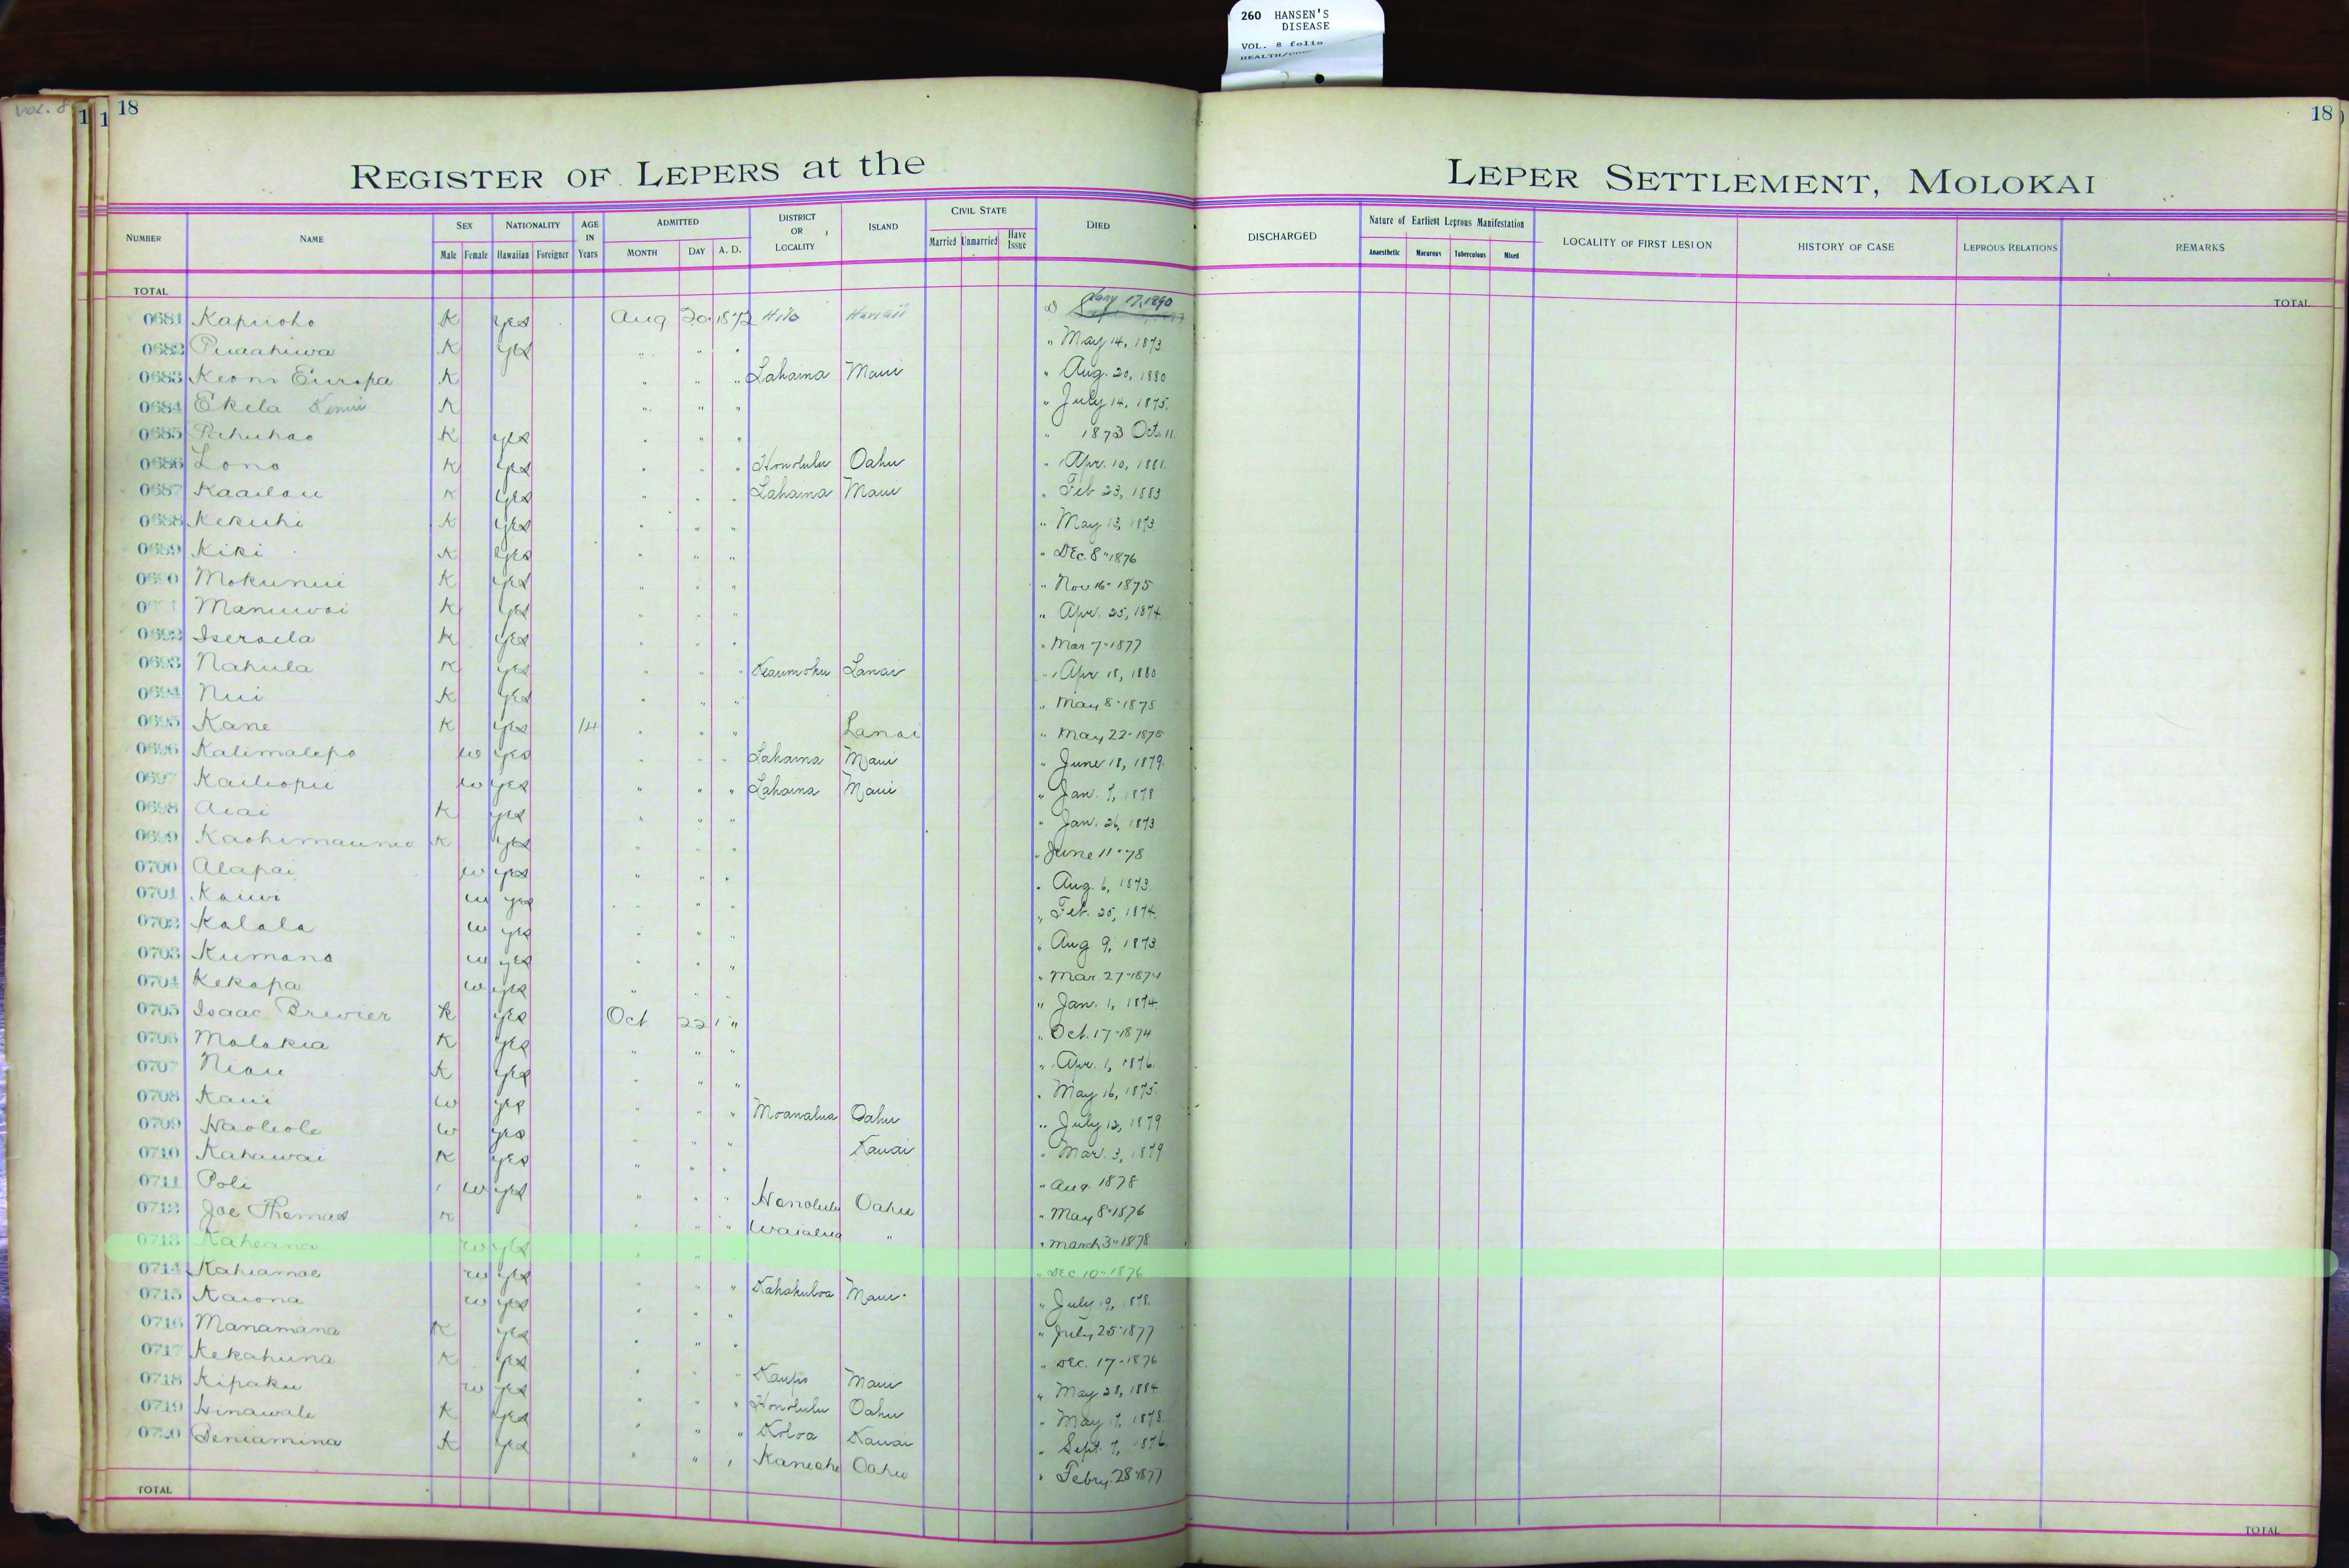 260 HANSEN'S
DISEASE
VOL. 8 folio
VOL. 8
1 1 18
18
REGISTER OF LEPERS at the LEPER SETTLEMENT, MOLOKAI
NUMBER NAME SEX Male Female NATIONALITY Hawaiian Foreigner AGE IN Years ADMITTED MONTH DAY A. D. DISTRICT OR LOCALITY ISLAND CIVIL STATE Married Unmarried Have Issue DIED DISCHARGED Nature of Earliest Leprous Manifestation Anaesthetic Macurous Tuberculous Mixed LOCALITY OF FIRST LESION HISTORY OF CASE LEPROUS RELATIONS REMARKS
TOTAL TOTAL
0681 Kapiioho K yes Aug 20 1872 Hilo Hawaii Jany 17, 1890
0682 Puaahiwa K yes " " " " May 14, 1873
0683 Keoni Europa K " " " Lahaina Maui " Aug. 20, 1880
0684 Ekela K " " " " July 14, 1875.
0685 Pahuhao K yes " " " " 1873 Oct. 11
0686 Lono K yes " " " Honolulu Oahu " Apr. 10, 1881.
0687 Kaailau K yes " " " Lahaina Maui " Feb 23, 1883
0688 Kekuhi K yes " " " " May 13, 1873
0689 Kiki K yes " " " " Dec. 8" 1876
0690 Mokunui K yes " " " " Nov 16" 1875
Manuwai K yes " " " " Apr. 25, 1874.
0692 Iseraela K yes " " " " Mar 7" 1877
0693 Nahula K yes " " " Keaumoku Lanai " Apr. 18, 1880
0694 Nui K yes " " " " May 8" 1875
0695 Kane K yes 14 " " " Lanai " May 22" 1875
0696 Kalimalepo w yes " " " Lahaina Maui " June 18, 1879.
0697 Kailiopu w yes " " " Lahaina Maui " Jan. 7, 1878
0698 Aiai K yes " " " " Jan. 26, 1873
0699 Kaohimaunu K yes " " " " June 11" 78
0700 Alapai w yes " " " " Aug. 6, 1873
0701 Kauwi w yes " " " " Feb. 25, 1874.
0702 Kalala w yes " " " " Aug 9, 1873.
0703 Kumano w yes " " " " Mar 27" 1874
0704 Kekapa w yes " " " " Jan. 1, 1874.
0705 Isaac Brewier K yes Oct 22 " " Oct. 17" 1874
0706 Molokia K yes " " " " Apr. 1, 1876.
0707 Niau K yes " " " " May 16, 1875.
0708 Kaui w yes " " " Moanalua Oahu " July 12, 1879
0709 Haoleole w yes " " " Kauai " Mar. 3, 1879
0710 Kahawai K yes " " " " Aug 1878
0711 Poli w yes " " " Honolulu Oahu " May 8" 1876
0712 Joe Thomas K " " " Waialua " " March 3" 1878
0713 Kaheana w yes " " " " Dec. 10" 1876
0714 Kahiamoe w yes " " " Kahakuloa Maui " July 19, 1878.
0715 Kaiona w yes " " " July 25" 1877
0716 Manamana K yes " " " " Dec. 17" 1876
0717 Kekahuna K yes " " " Kaupo Maui " May 28, 1884
0718 Kipaku w yes " " " Honolulu Oahu " May 17, 1878.
0719 Hinawale K yes " " " Koloa Kauai " Sept. 7, 1876.
0720 Beniamina K yes " " " Kaneohe Oahu " Febry. 28" 1877
TOTAL TOTAL